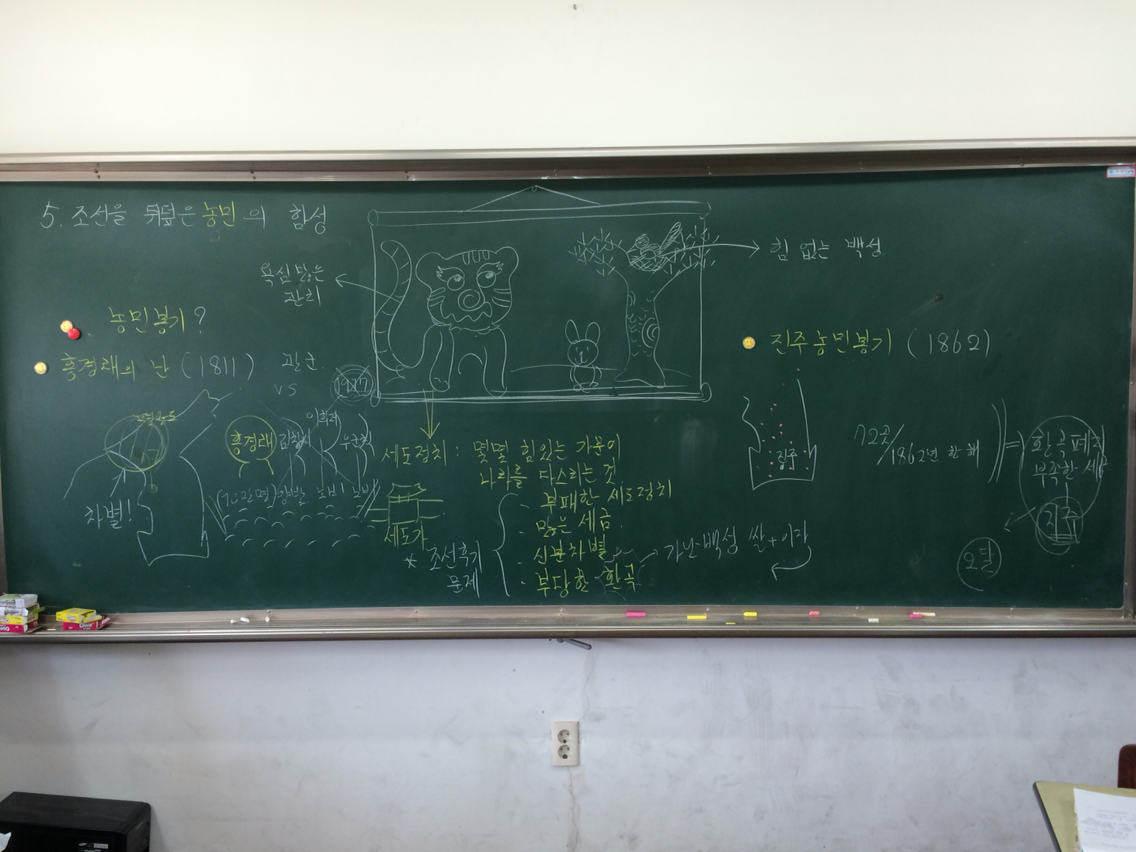 5. 조선을 뒤덮은 농민의 함성
욕심 많은
관리
힘 없는 백성
농민봉기?
홍경래의 난 (1811)
관군
vs
차별!
홍경래
세도정치 : 몇몇 힘있는 가문이
나라를 다스리는 것
세도가
* 조선후기
문제
- 부패한 세도정치
- 많은 세금
- 신분차별
- 부당한 환곡
가난 백성 쌀+이자
진주농민봉기 (1862)
진주
72곳/1862년 한 해
환곡 폐지
지주